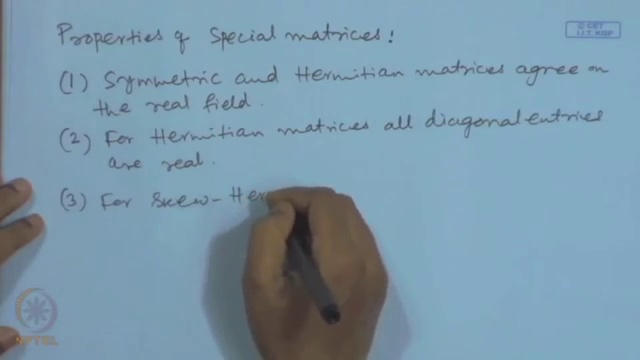 Properties of Special matrices:
© CET
I.I.T. KGP
(1) Symmetric and Hermitian matrices agree on
the real field.
(2) For Hermitian matrices all diagonal entries
are real.
(3) For Skew-Her
NPTEL